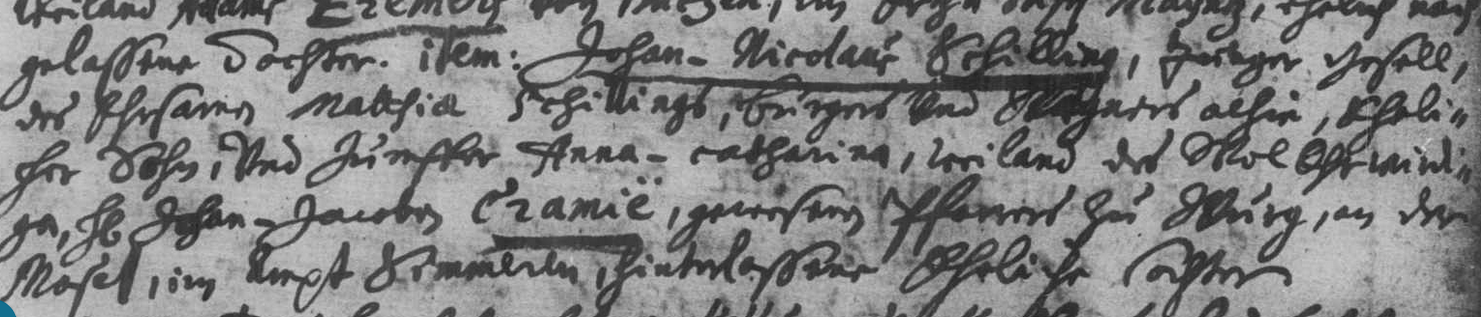 weiland Adams
gelassene Dochter. item: Johan-Nicolaus Schilling, junger gesell,
des Ehrsamen Matthiæ Schillings, burgers und Wagners alhie, Eheli-
cher Sohn, Und Jumffer Anna-catharina, weiland des Wol Ehrwürdi-
gen, H. Johan-Jacoben Cramië, gewesenen Pfarrers zu Würg, an der
Mosel, im Ampt Semmeren, hinterlassene Eheliche Dochter